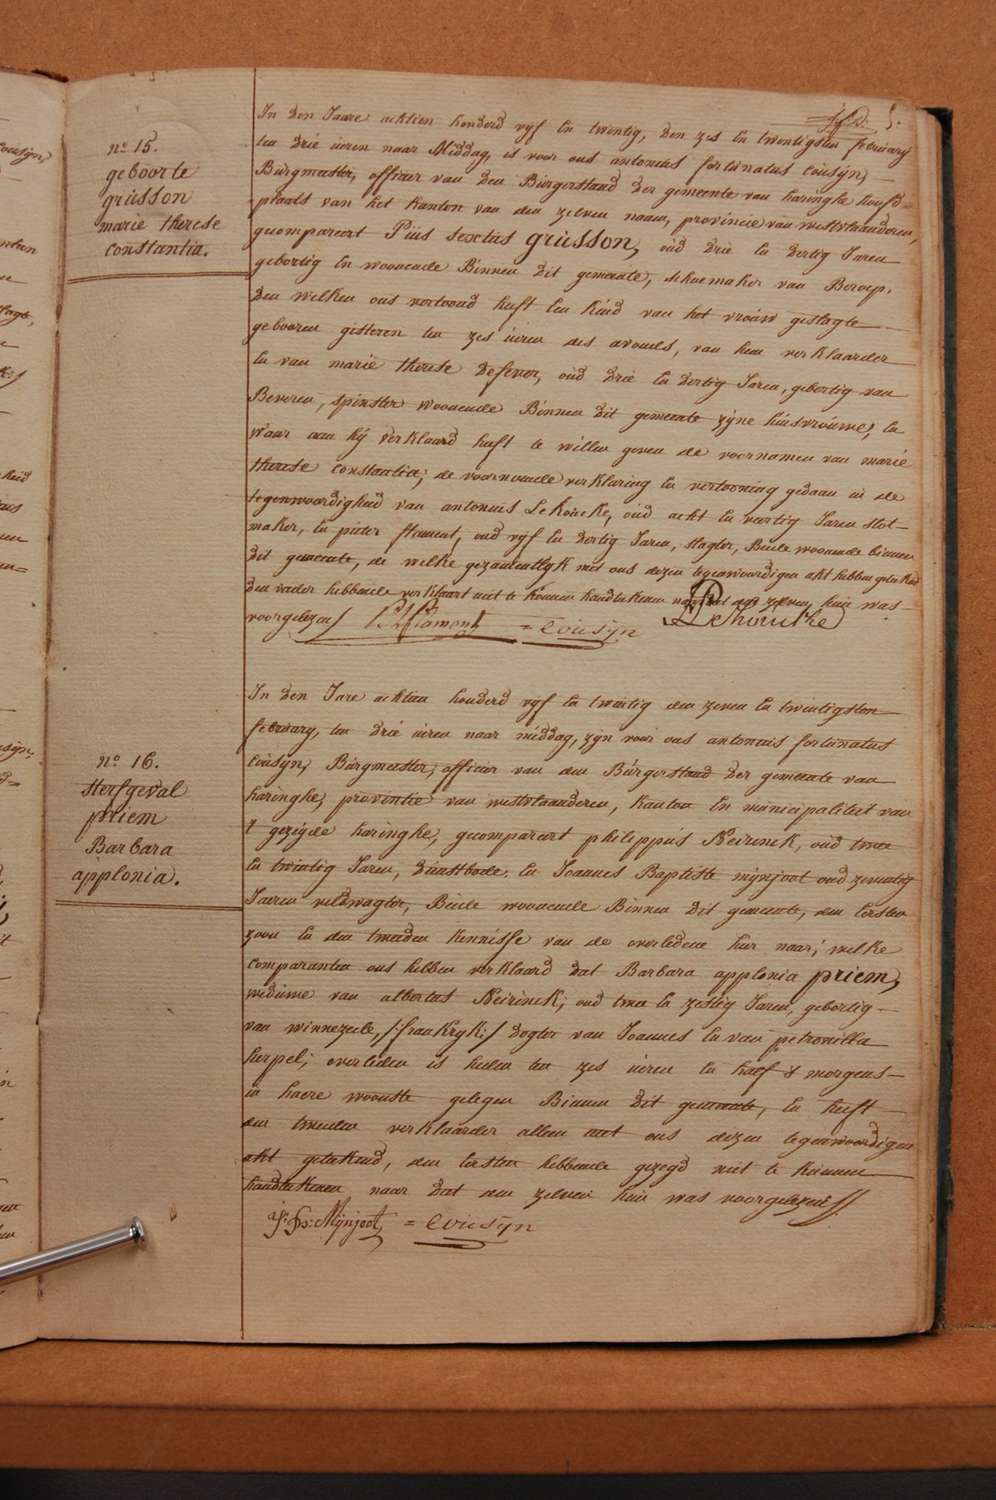 5.
no 15.
geboorte
grusson
marie therese
constantia.
In den Jaare achtien honderd vyf en twentig, den zes en twentigsten february
ten drie uiren naar Middag, is voor ons antonius fortunatus Cousyn,
Burgmeester, officier van den Burgerstand der gemeente van haringhe hoofd=
plaats van het kanton van den zelven naam, provincie van westvlaanderen,
gecomparert Pius Sextus grusson, oud drie en dertig Jaren
gebortig en woonende Binnen dit gemeente, schoemaker van Beroep,
den welken ons vertoond heeft een kind van het vrouw geslagte
gebooren gisteren ten zes uiren des avonds, van hem verklaarder
en van marie therese Defever, oud drie en dertig Jaren, gebortig van
Beveren, spinster woonende Binnen dit gemeente zyne huisvrouwe, en
waar aan hÿ verklaard heeft te willen geven de voornamen van marie
therese constantia; de voornoemde verklaring en vertooning gedaan in de
tegenwoordigheid van antonius Lehoucke, oud acht en veertig Jaren stot-
maker, en pieter flament, oud vyf en dertig Jaren, slagter, Beide woonende binnen
dit gemeente, de welke gezamentlyk met ons dezen tegenwoordigen akt hebben getekend
den vader hebbende verklaart niet te konnen handtekenen naar dat den zelven hun was
voorgelezen / P Flament = Cousyn Lehoucke
no 16.
sterfgeval
priem
Barbara
applonia.
In den Jare achtien honderd vyf en twintig den zeven en twintigsten
february, ten drie uiren naar middag, zyn voor ons antonius fortunatus
Cousyn, Burgmeester, officier van den Burgerstand der gemeente van
haringhe, proventie van westvlaanderen, kanton en municipaliteit van
't gezegde haringhe, gecomparert philippus Neirinck, oud twee
en twintig Jaren, dienstbode, en Joannes Baptiste mynjoot oud zeventig
Jaren veldwagter, Beide woonende Binnen dit gemeente, den eersten
zoon en den tweeden kennisse van de overledene hier naar; welke
comparanten ons hebben verklaard dat Barbara applonia priem,
weduwe van albertus Neirinck; oud twee en zestig Jaren, gebortig
van winnezeele, /:frankryk:/ dogter van Joannes en van petronilla
herpel; overleden is heden ten zes uiren en half s morgens
in haere woonste gelegen Binnen dit gemeente, en heeft
den tweeden verklaarder alleen met ons dezen tegenwoordigen
akt getekend, den eersten hebbende gezegd niet te kunnen
handtekenen naar dat den zelven hun was voorgelezen //
J: Bs: Mÿnjoot = Cousyn